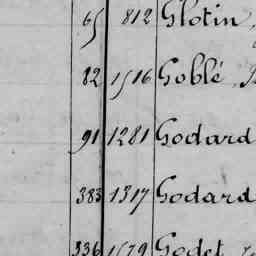 65 812 Glotin,
82 1516 Goblé,
91 1281 Godard
383 1317 Godard
336 1579 Godet,